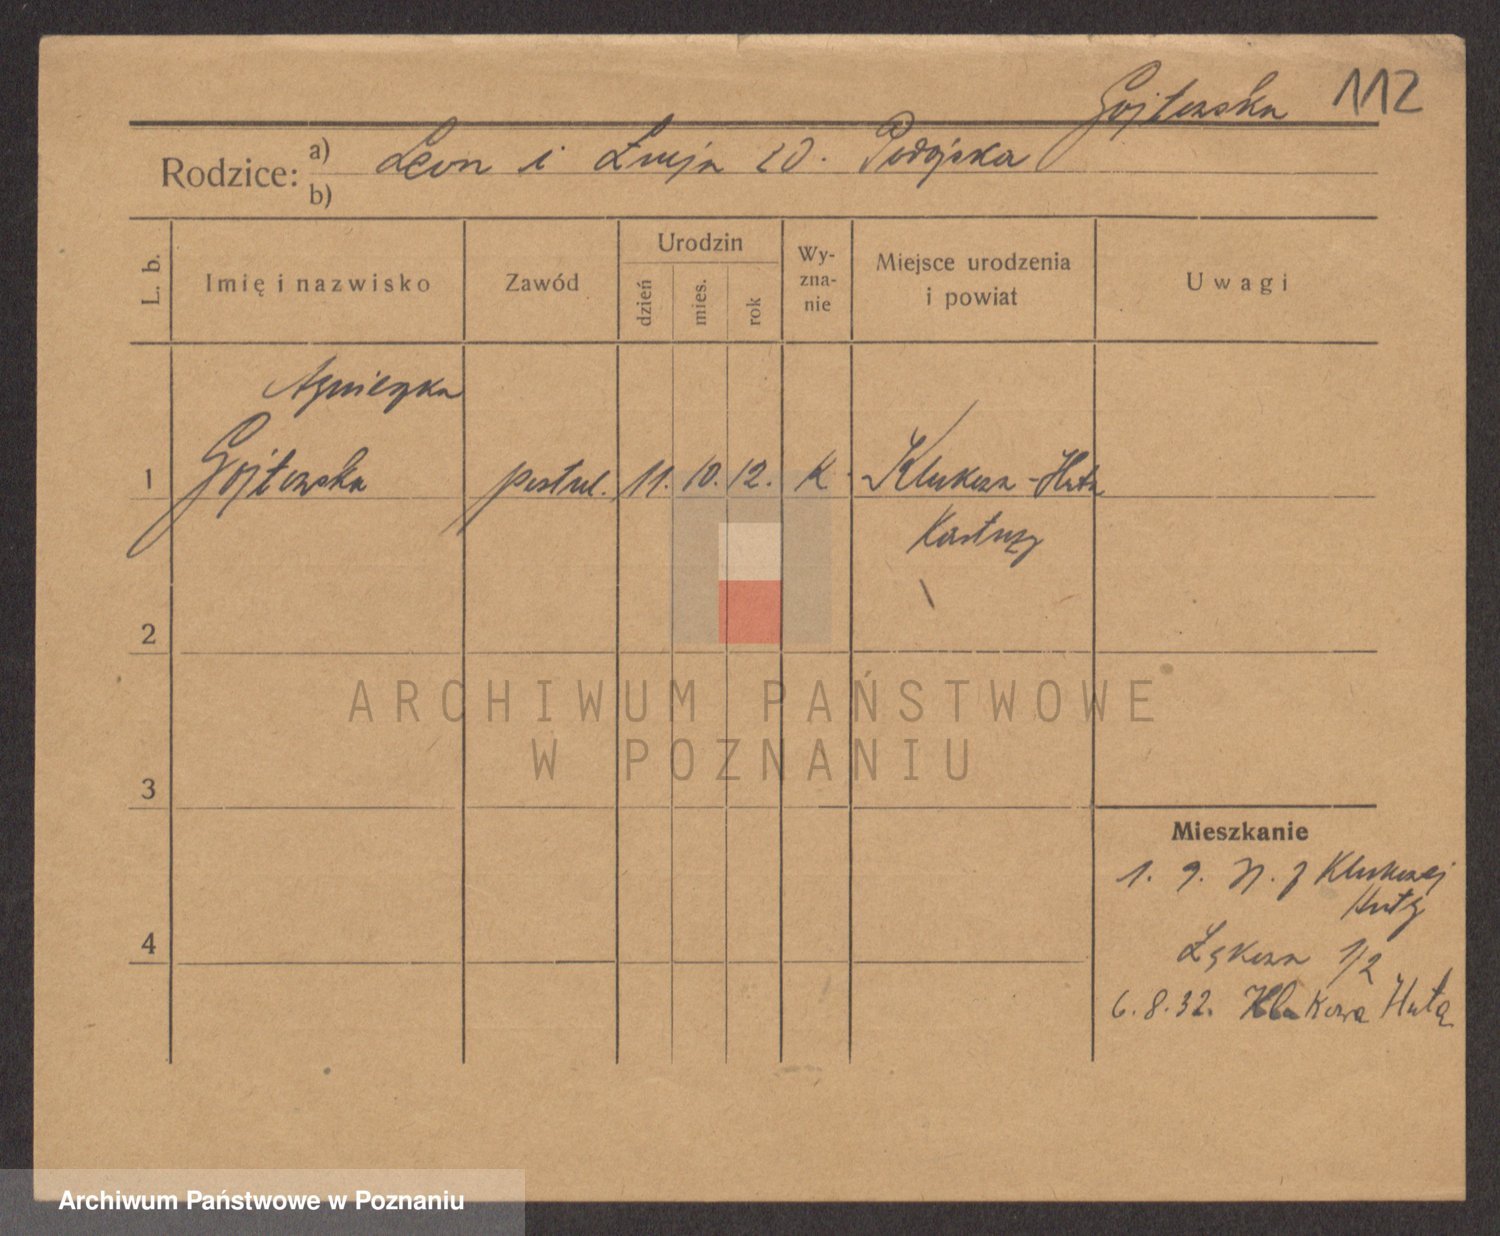 Gojtowska 112
Rodzice: a) Leon i Łucja z d. Podojska
b)
L. b.
Imię i nazwisko
Zawód
Urodzin
dzień
mies.
rok
Wy-
zna-
nie
Miejsce urodzenia
i powiat
Uwagi
Agnieszka
1 Gojtowska postul. 11. 10. 12. K. Klukowa-Huta
Kartuzy
2
3
4
ARCHIWUM PAŃSTWOWE
W POZNANIU
Mieszkanie
1. 9. z Klukowej
Huty
Łąkowa 1/2
6.8.32. Klukowa Huta
Archiwum Państwowe w Poznaniu